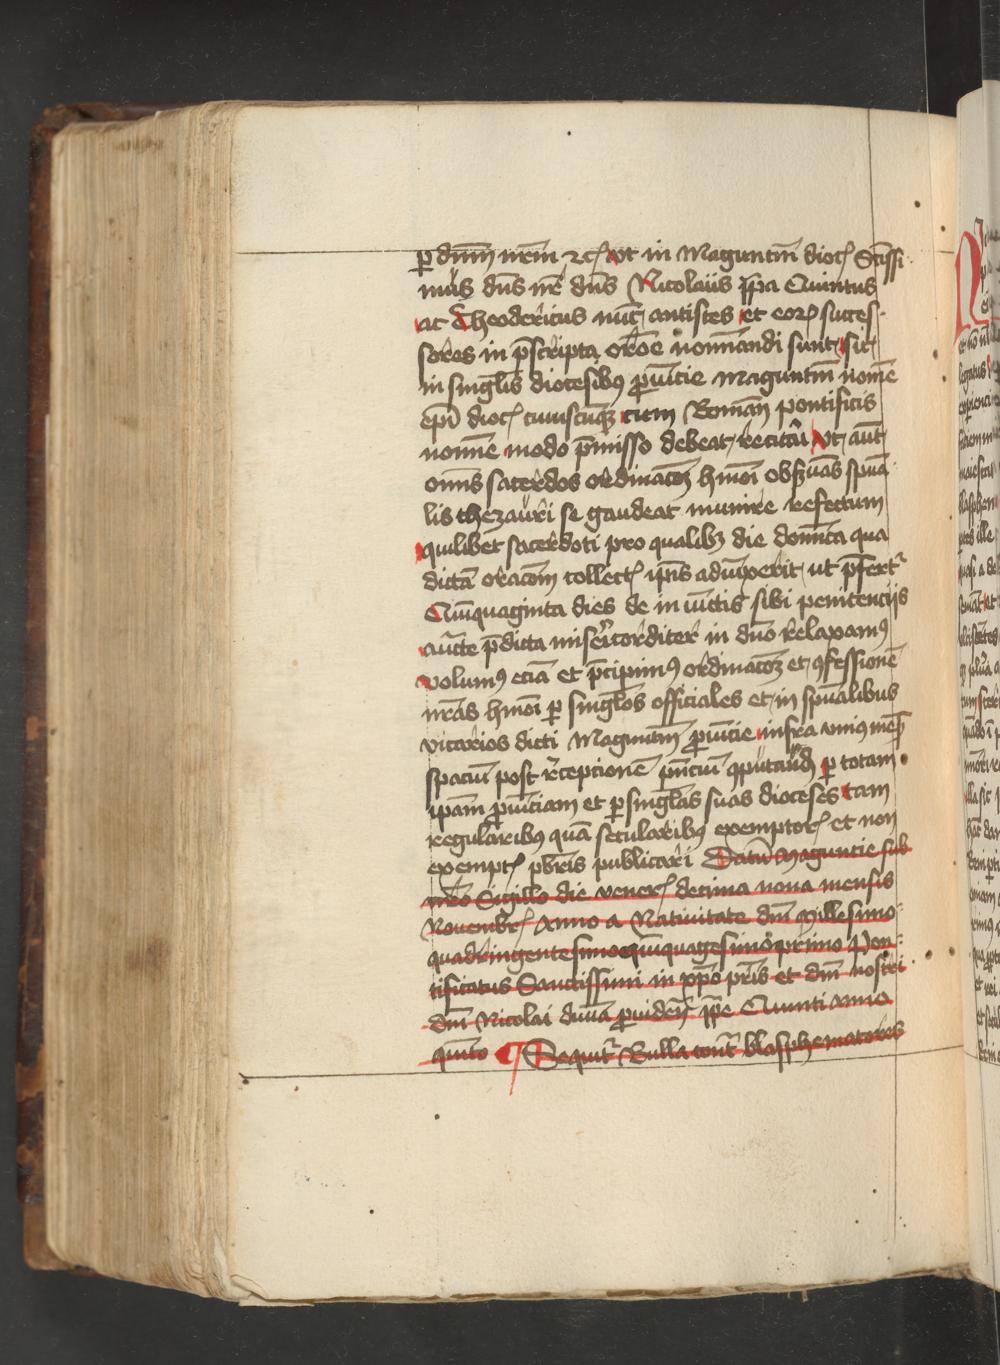 ꝑ dnm̄ nrm̄ ⁊cꝭ ut in Maguntin̄ diocꝭ Sctissi
mus dn̄s nr̄ dn̄s Nicolaus ppa Quintus
ac Theodericus nunc antistes et eoꝝ succes-
sores in p̄scripta orōne nominandi sunt sic
in singul̄is diocesibꝰ ꝓuincie Maguntin̄ nomē
epi diocꝭ cuiuscunqꝫ cum Roman̄ pontificis
nomine modo p̄misso debeat recitari Ut aut
omnis sacerdos ordinacōꝫ hmōi obẜuās spūa
lis thezauri se gaudeat munire refectum
quilibet sacerdoti pro qualibꝫ die dominica qua
dictā oracōm collectꝭ ip̄is adiunxerit ut p̄fertur
Quinquaginta dies de iniunctis sibi penitencijs
auct̄te p̄dicta misericorditer in dn̄o relaxamꝰ
volumꝰ eciā et p̄cipimꝰ ordinacōꝫ et ꝯfessionē
nrās hmōi ꝑ singulos officiales et in spūalibus
vicarios dicti Maguntin̄ ꝓuincie infra vniꝰ mēsꝭ
spaciū post r̄ceptionē pn̄ciū ꝯputandꝭ ꝑ totam
ipam ꝓuinciam et ꝑ singulas suas dioceses tam
regularibꝰ quā secularibꝰ exemptorꝭ et non
exemptꝭ pbr̄is publicari Datū Maguntie sub
nr̄o Sigillo die venerꝭ decima nona mensis
Nouembrꝭ Anno a Natiuitate dnī Millesimo
quadringentesimoquinquagesimoprimo Pon-
tificatus Sanctissimi in xp̄o pr̄is et dnī nostri
dnī Nicolai diuīa ꝓuidenꝭ ppe Quinti anno
quinto ¶ Sequitur Bulla contra blasphematores